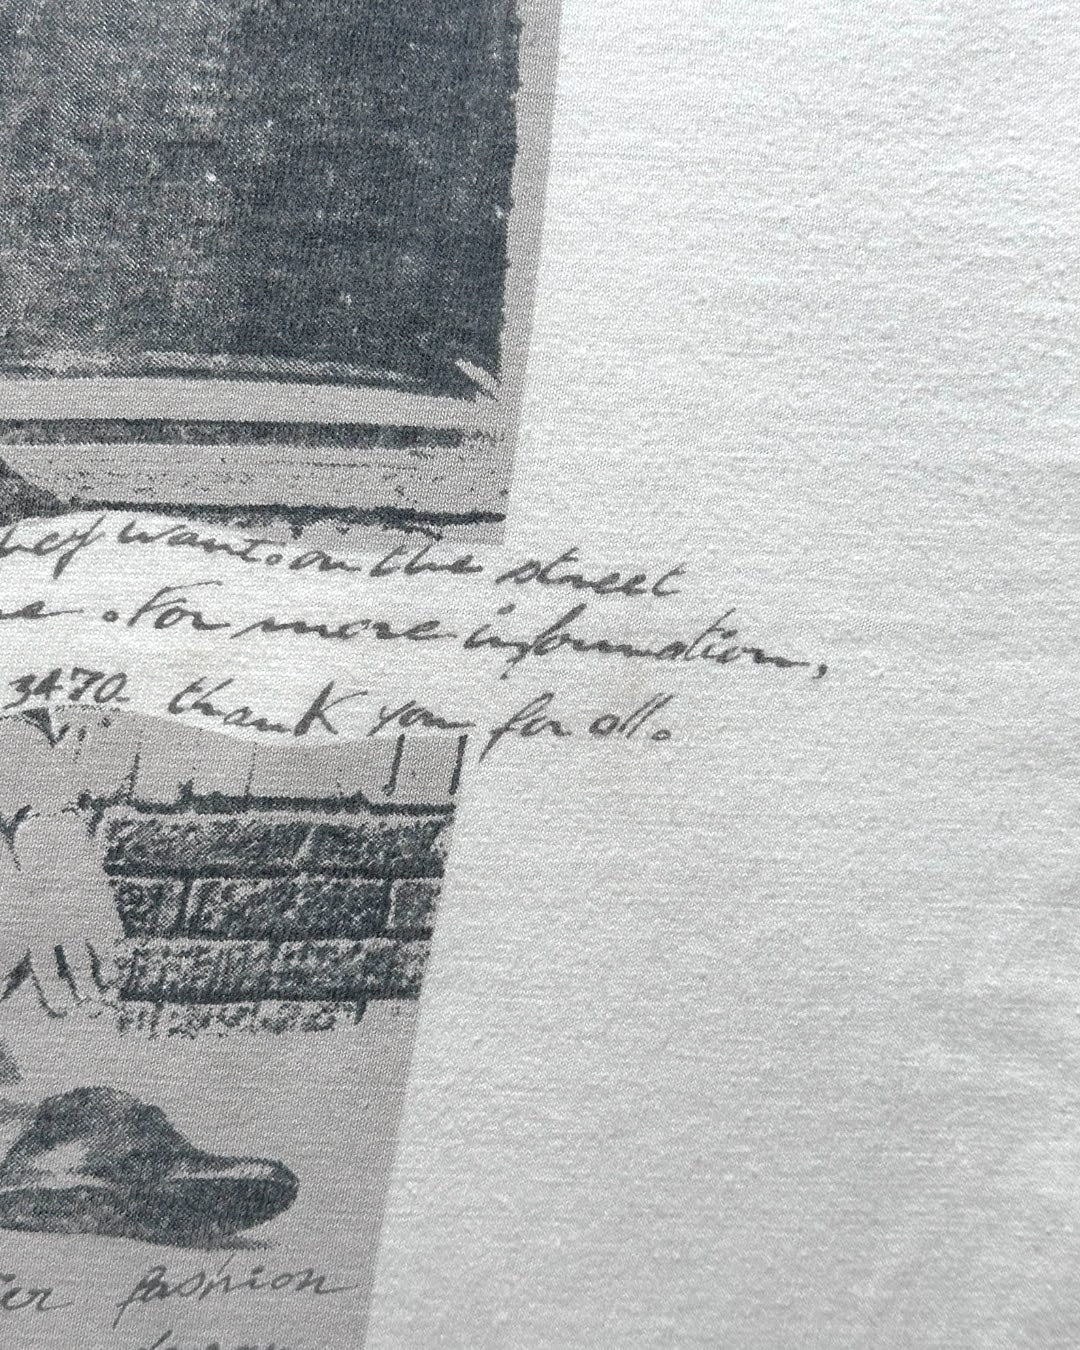 they want. on the street
. For more information,
3470. thank you for all.
fashion